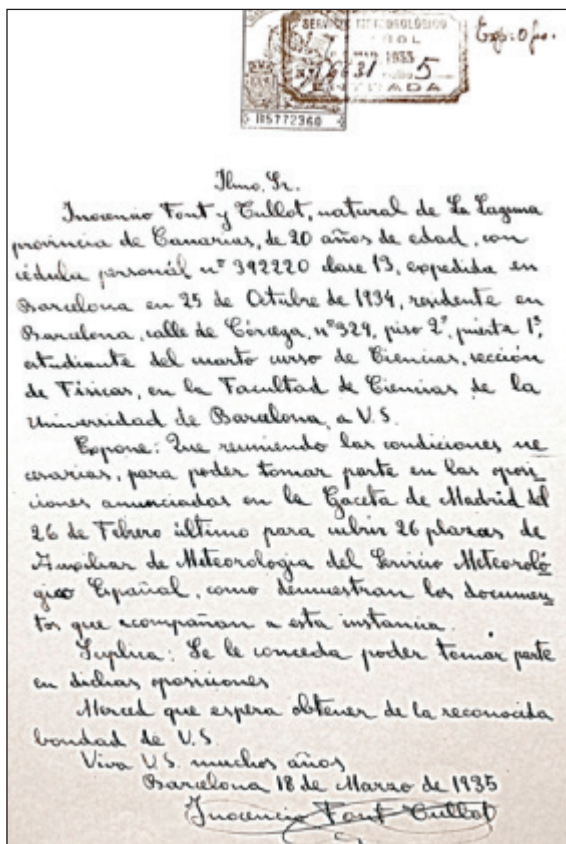 SERVICIO METEOROLÓGICO
ESPAÑOL
1935
5
ENTRADA
B5772360
Exp: Opo.
Ilmo. Sr.
Inocencio Font y Tullot, natural de La Laguna
provincia de Canarias, de 20 años de edad, con
cédula personal nº 392220 clase 13, expedida en
Barcelona en 25 de Octubre de 1934, residente en
Barcelona, calle de Córcega, nº 324, piso 2º, puerta 1ª,
estudiante del cuarto curso de Ciencias, sección
de Físicas, en la Facultad de Ciencias de la
Universidad de Barcelona, a V.S.
Expone: Que reuniendo las condiciones ne
cesarias, para poder tomar parte en las oposi
ciones anunciadas en la Gaceta de Madrid del
26 de Febrero último para cubrir 26 plazas de
Auxiliar de Meteorologia del Servicio Meteoroló
gico Español, como demuestran los documen
tos que acompañan a esta instancia.
Suplica: Se le conceda poder tomar parte
en dichas oposiciones
Merced que espera obtener de la reconocida
bondad de V.S.
Viva V.S. muchos años
Barcelona 18 de Marzo de 1935
Inocencio Font Tullot